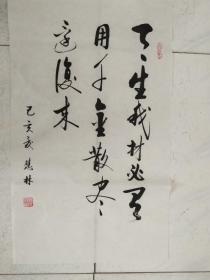 天生我材必有
用千金散尽
还复来
己亥年 慧林